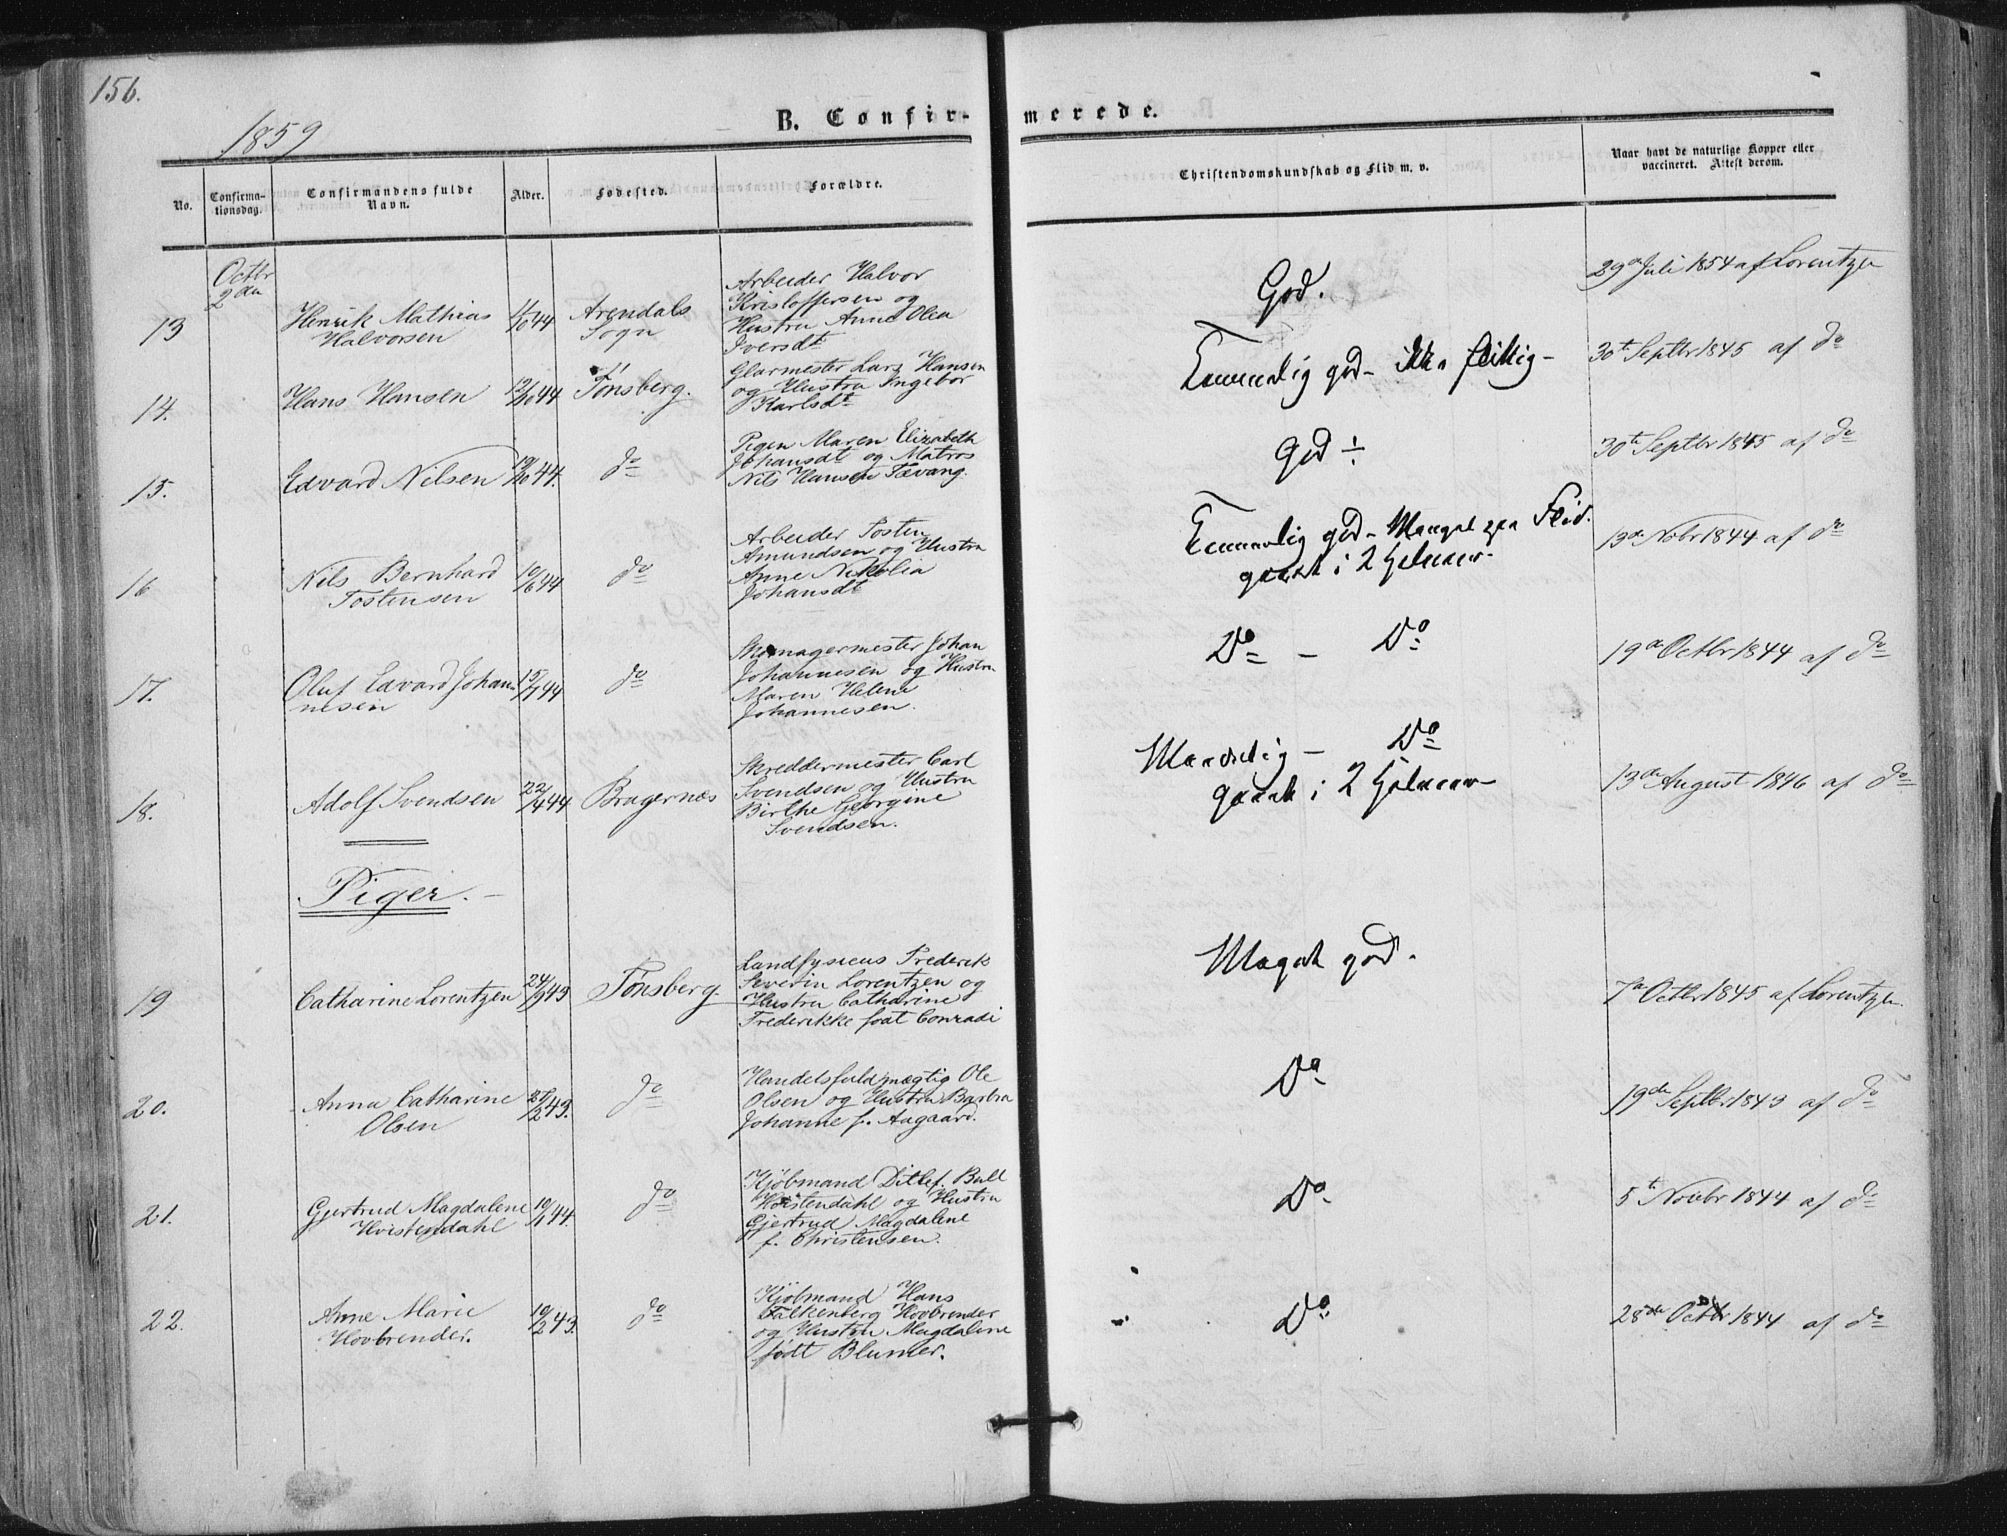 156.
1859
B. Confirmerede.
No.
Confirmationsdag.
Confirmandens fulde Navn.
Alder.
Fødested.
Forældre.
Christendomskundskab og Flid m. v.
Naar havt de naturlige Kopper eller vaccineret. Attest derom.
Octbr
2den
13
Henrik Mathias
Halvorsen
44
Arendals
Sogn
Arbeider Halvor
Kristoffersen og
Hustru Anne Olea
Iversdt
God.
29de Juli 1854 af Lorentzen
14.
Hans Hansen
12/10 44
Tönsberg.
Glarmester Lars Hansen
og Hustru Ingebor
Karlsdt
Temmelig god - ikke flittig -
30te Septbr 1845 af do
15.
Edvard Nilsen
19/10 44.
do
Pigen Maren Elizabeth
Johansdt og Matros
Nils Hansen Tævang.
God ÷
30te Septbr 1845 af do
16
Nils Bernhard
Tostensen
10/6 44
do
Arbeider Tosten
Amundsen og Hustru
Anne Nikolea
Johansdt
Temmelig god - Mangel paa Flid.
gaaet i 2 Halvaar -
13de Nobr 1844 af do
17.
Oluf Edvard Johan-
nesen
15/7 44
do
Skomagermester Johan
Johannesen og Hustru
Maren Helene
Johannesen.
Do - Do
19de Octbr 1844 af do
18.
Adolf Svendsen
22/4 44
Bragernæs
Skreddermester Carl
Svendsen og Hustru
Birthe Georgine
Svendsen.
Maadelig - Do
gaaet i 2 Halvaar -
13de August 1846 af do
Piger. -
19
Catharine Lorentzen
24/9 43
Tönsberg.
Landfysicus Frederik
Severin Lorentzen og
Hustru Catharine
Frederikke født Conradi
Meget god.
7de Octbr 1845 af Lorentzen.
20.
Anna Catharine
Olsen
43.
do
Handelsfuldmægtig Ole
Olsen og Hustru Barbra
Johanne f. Aagaard.
Do
19de Septbr 1843 af do
21.
Gjertrud Magdalene
Hvistendahl
10/1 44.
do
Kjöbmand Ditlef Bull
Hvistendahl og Hustru
Gjertrud Magdalene
f. Christensen.
Do
5te Novbr 1844 af do
22.
Anne Marie
Hovbrender.
10/2 43.
do
Kjöbmand Hans
Falkenberg Hovbrender
og Hustru Magdalene
födt Blumer.
Do
28de Octbr 1844 af do